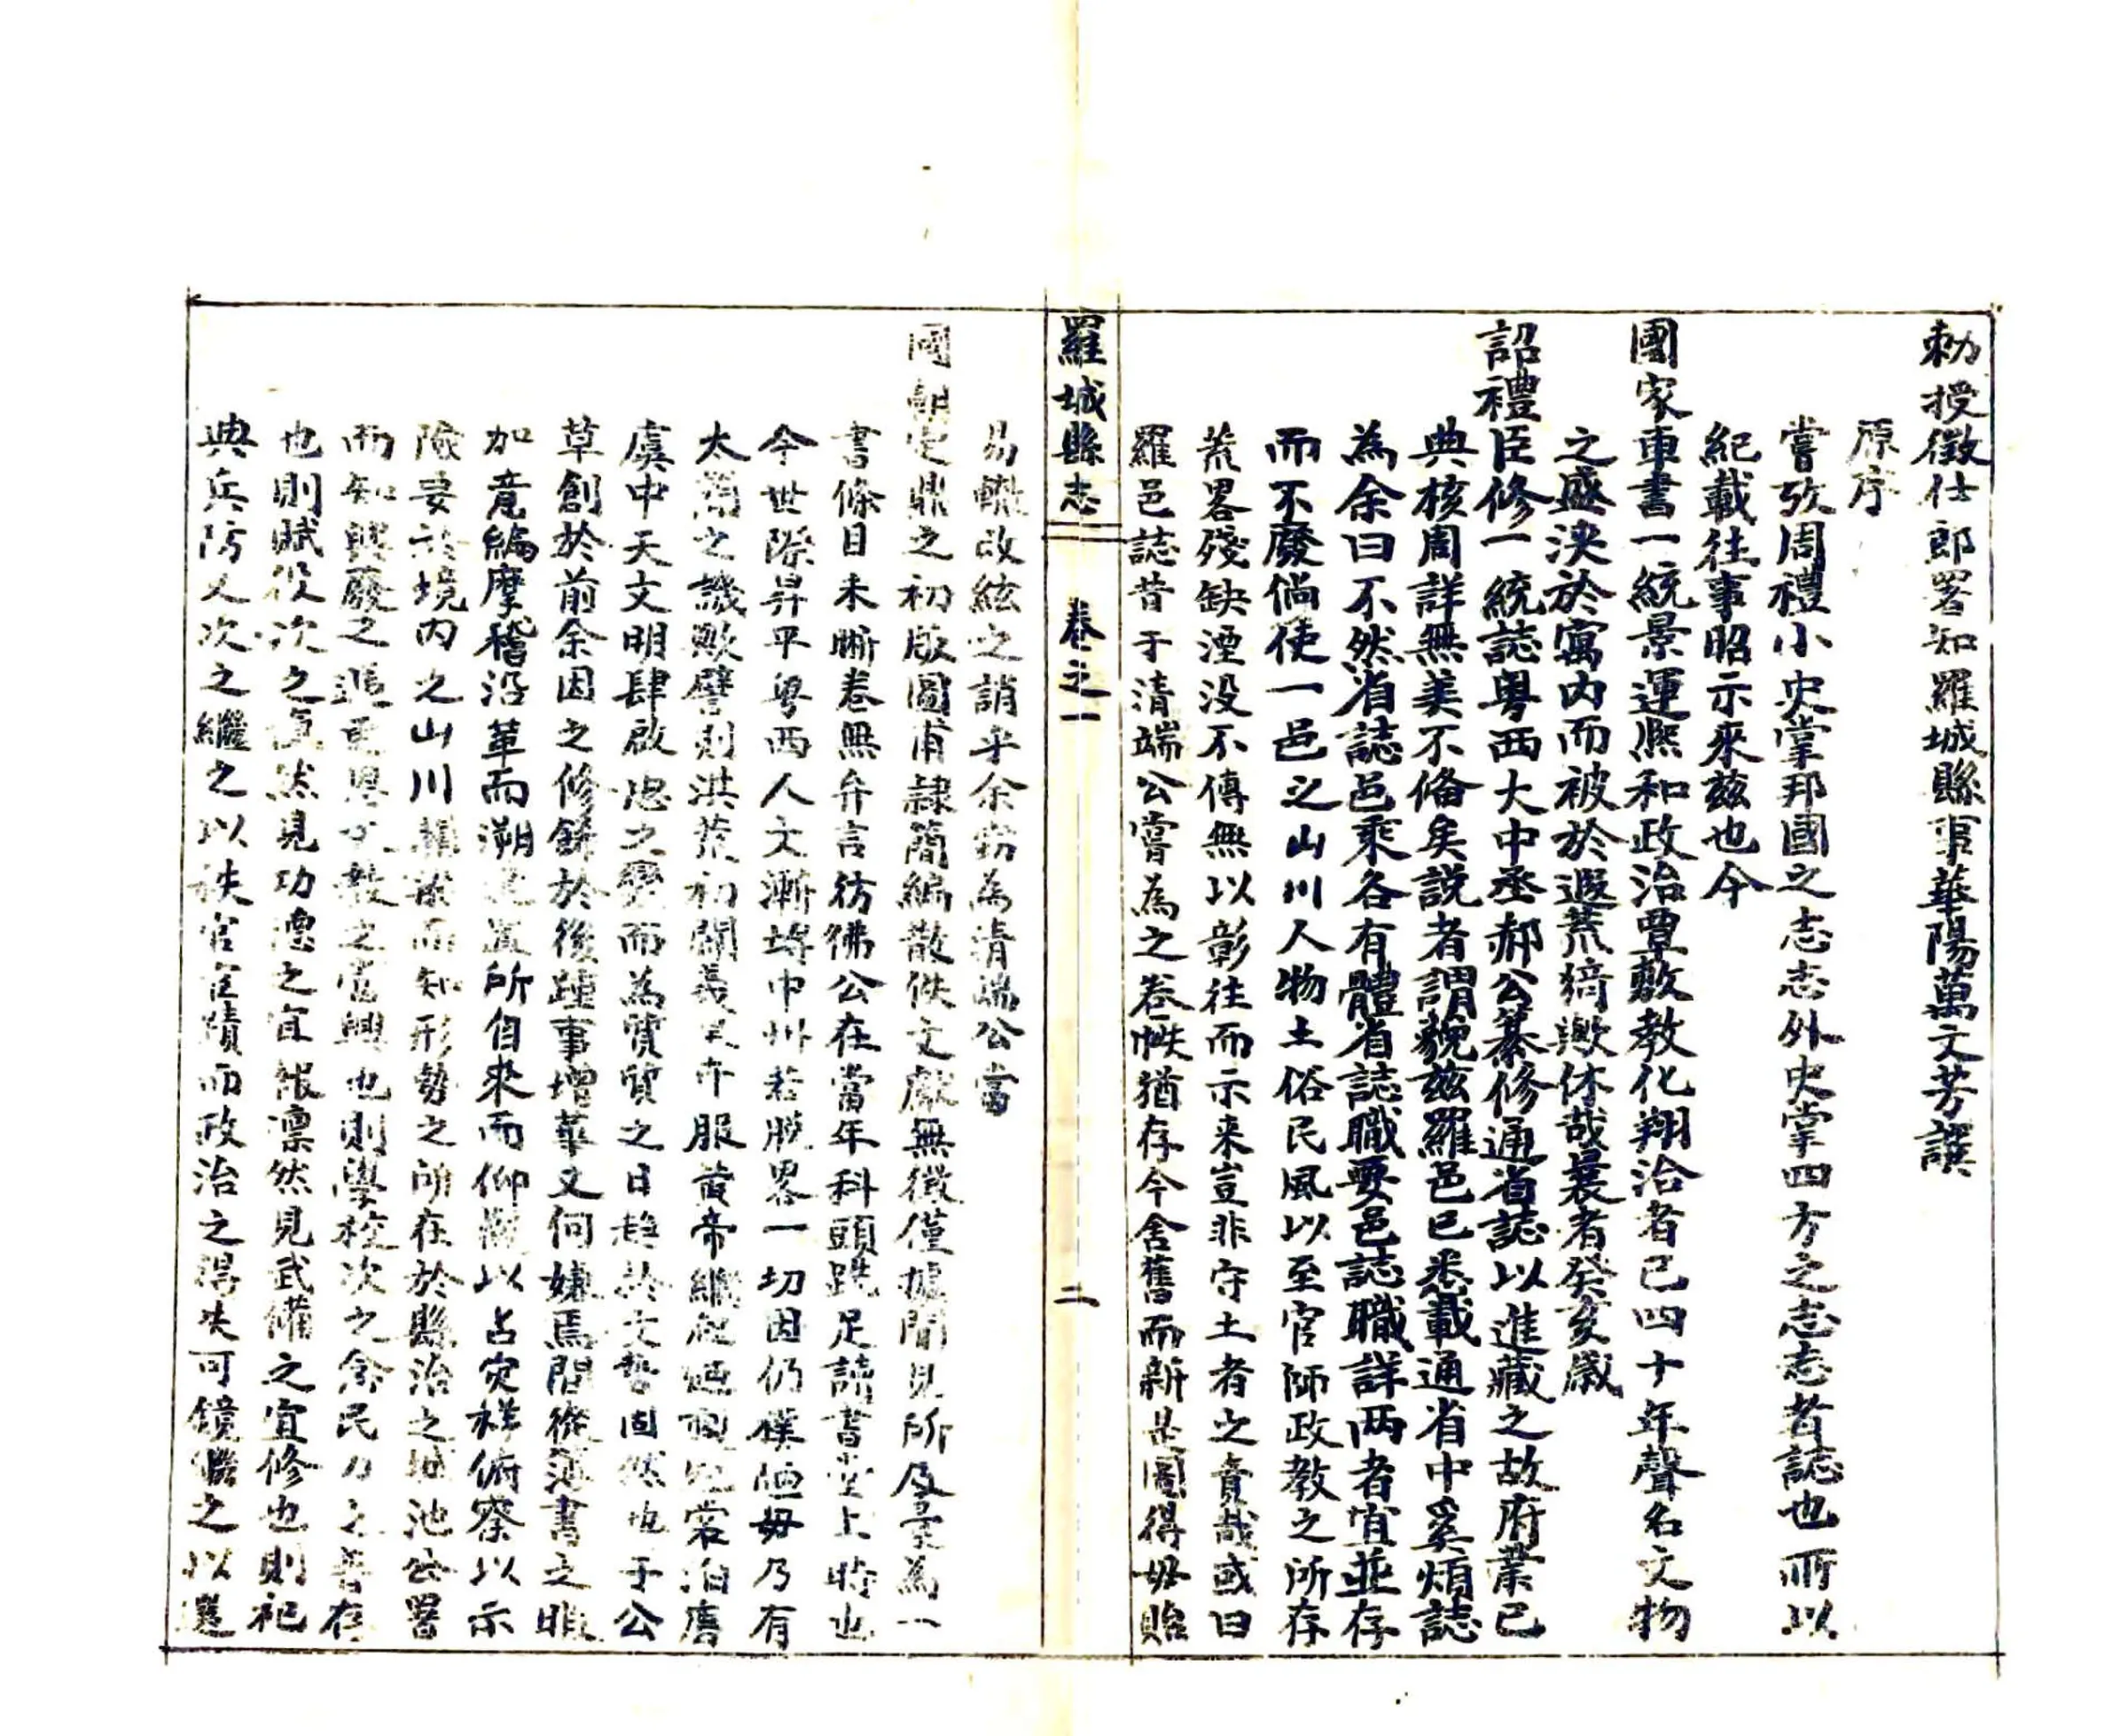 勅授徵仕郎署知羅城縣事華陽萬文芳譔
原序
嘗攷周禮小史掌邦國之志志外史掌四方之志志者誌也所以
紀載往事昭示來茲也今
國家車書一統景運熙和政治覃敷教化翔洽者已四十年聲名文物
之盛浹於寓内而被於遐荒猗歟休哉曩者癸亥歲
詔禮臣修一統誌粤西大中丞郝公纂修通省誌以進藏之故府業已
典核周詳無美不俻矣説者謂藐茲羅邑已悉載通省中奚煩誌
為余曰不然省誌邑乘各有體省誌職要邑誌職詳两者宜並存
而不廢倘使一邑之山川人物土俗民風以至官師政教之所存
荒畧殘缺湮没不傳無以彰往而示来豈非守土者之責哉或曰
羅邑誌昔于清端公嘗為之卷帙猶存今舍舊而新是圖得毋貽
羅城縣志 卷之一 二
易轍改絃之誚乎余労為清端公當
國朝定鼎之初版圖甫隷簡編散佚文獻無徵僅據聞見所及彙為一
書條目未晰卷無弁言彷彿公在當年科頭跣足讀書堂上時也
今世際昇平粤西人文漸埒中州若脱畧一切因仍樸陋毋乃有
太簡之譏歟譬則洪荒初闢羲 卉服黄帝繼起 裳洎唐
虞中天文明肆啟忠之變而為質質之日趋於文勢固然也于公
草創於前余因之修餙於後踵事增華文何嫌焉間從簿書之暇
加意編摩稽沿革而溯 置所自来而仰觀以占灾祥俯察以示
險要於境内之山川 而知形勢之所在於縣治之城池公署
而知興廢之 之當興也則學校次之念民力之 存
也則賦役次之 然見功德之宜報凛然見武備之宜修也則祀
典兵防又次之繼之以秩官宦蹟而政治之得失可鏡繼之以選